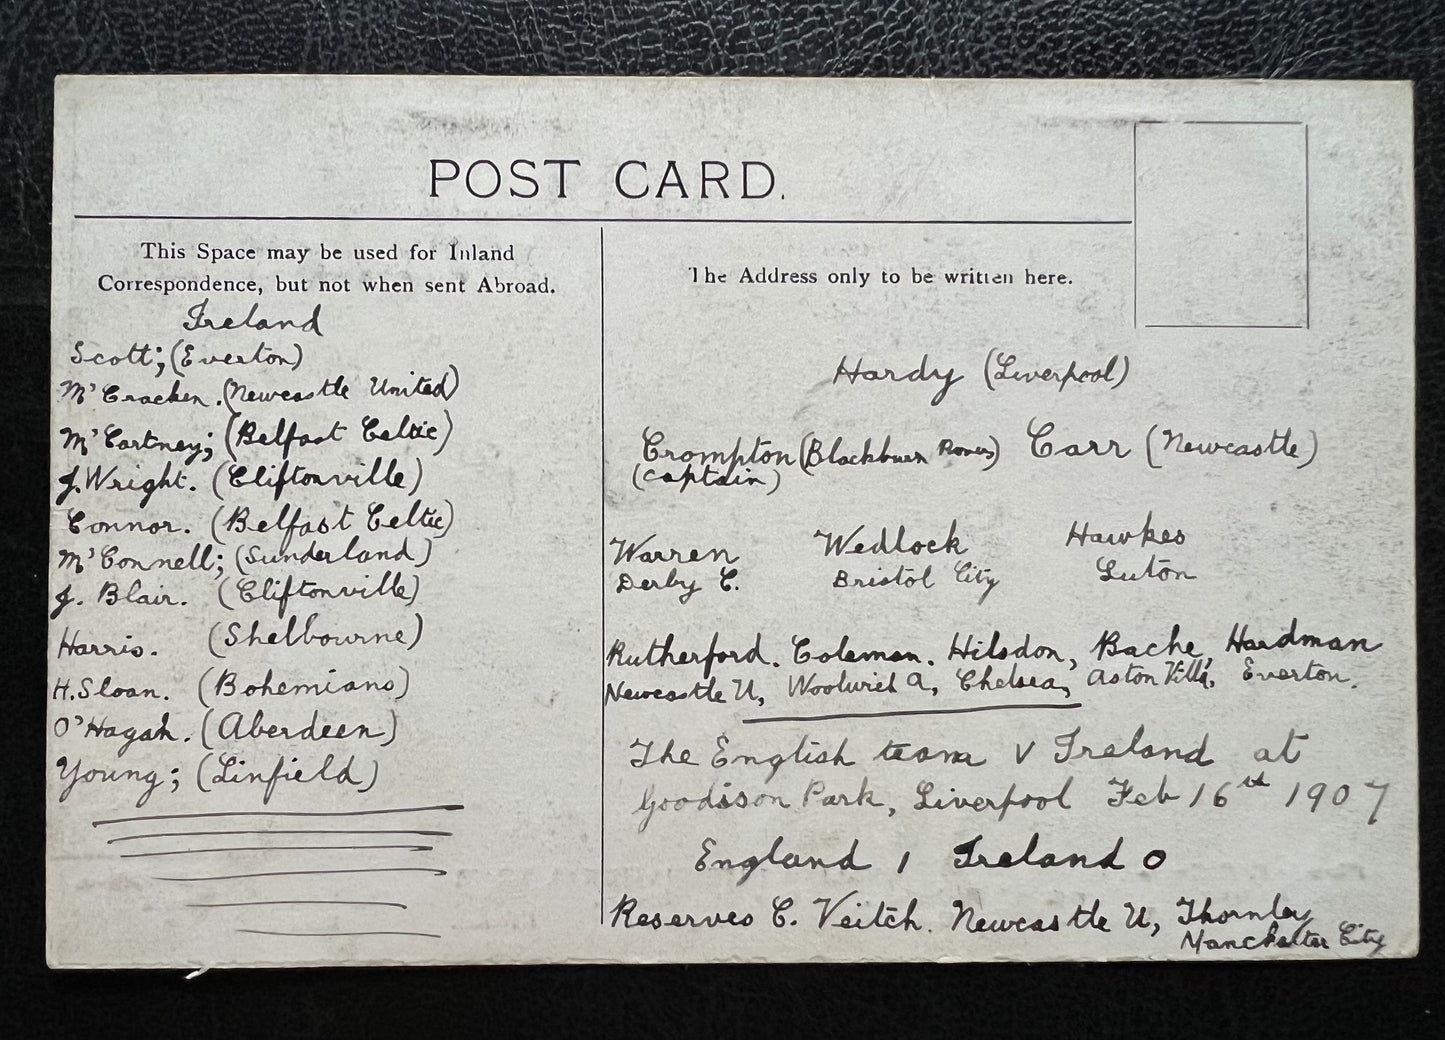 POST CARD.
This Space may be used for Inland
Correspondence, but not when sent Abroad.
Ireland
Scott; (Everton)
Mc'Cracken. (Newcastle United)
Mc'Cartney; (Belfast Celtic)
J. Wright. (Cliftonville)
Connor. (Belfast Celtic)
Mc'Connell; (Sunderland)
J. Blair. (Cliftonville)
Harris. (Shelbourne)
H. Sloan. (Bohemians)
O'Hagan. (Aberdeen)
Young; (Linfield)
The Address only to be written here.
Hardy (Liverpool)
Crompton (Blackburn Rovers) Carr (Newcastle)
(captain)
Warren Wedlock Hawkes
Derby C. Bristol City Luton
Rutherford. Coleman. Hilsdon, Bache, Hardman
Newcastle U, Woolwich A, Chelsea, Aston Villa, Everton.
The English team v Ireland at
Goodison Park, Liverpool Feb 16th 1907
England 1 Ireland 0
Reserves C. Veitch. Newcastle U, Thornley
Manchester City